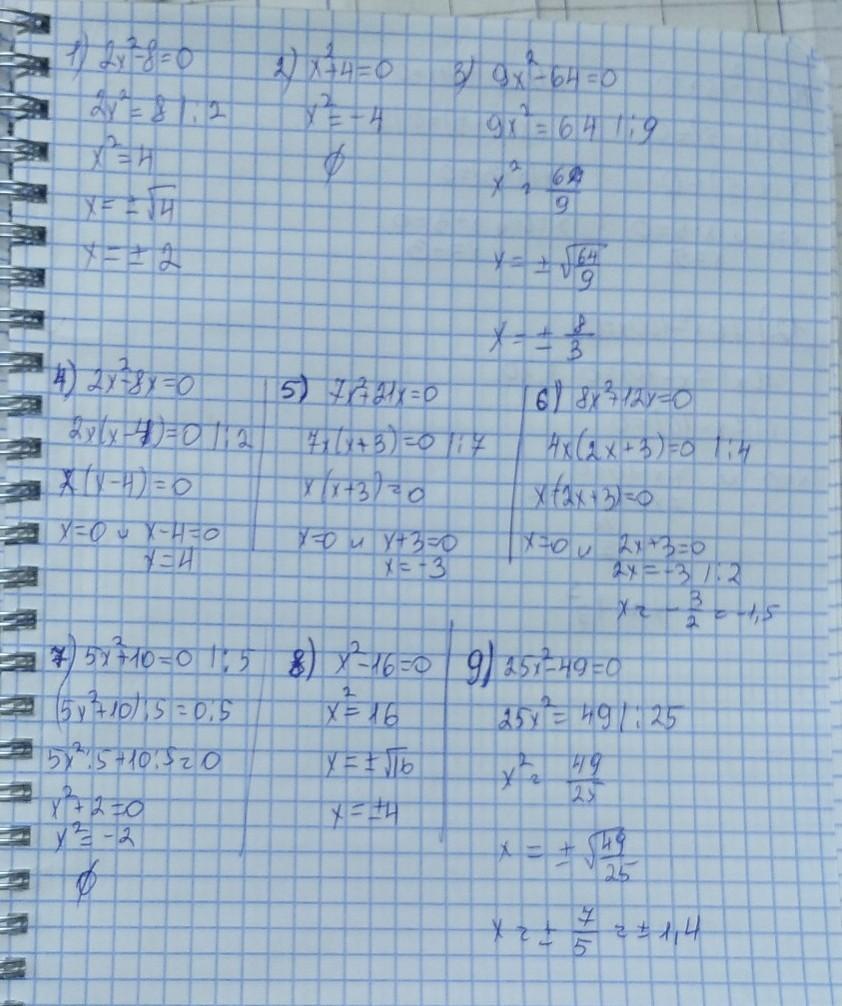 1) 2x²-8=0
2x²=8 |:2
x²=4
x=±√4
x=±2
2) x²+4=0
x²=-4
∅
3) 9x²-64=0
9x²=64 |:9
x²=64/9
x=±√64/9
x=±8/3
4) 2x²-8x=0
2x(x-4)=0 |:2
x(x-4)=0
x=0 и x-4=0
x=4
5) 7x²+21x=0
7x(x+3)=0 |:7
x(x+3)=0
x=0 и x+3=0
x=-3
6) 8x²+12x=0
4x(2x+3)=0 |:4
x(2x+3)=0
x=0 и 2x+3=0
2x=-3 |:2
x=-3/2=-1,5
7) 5x²+10=0 |:5
(5x²+10):5=0:5
5x²:5+10:5=0
x²+2=0
x²=-2
∅
8) x²-16=0
x²=16
x=±√16
x=±4
9) 25x²-49=0
25x²=49 |:25
x²=49/25
x=±√49/25
x=±7/5=±1,4